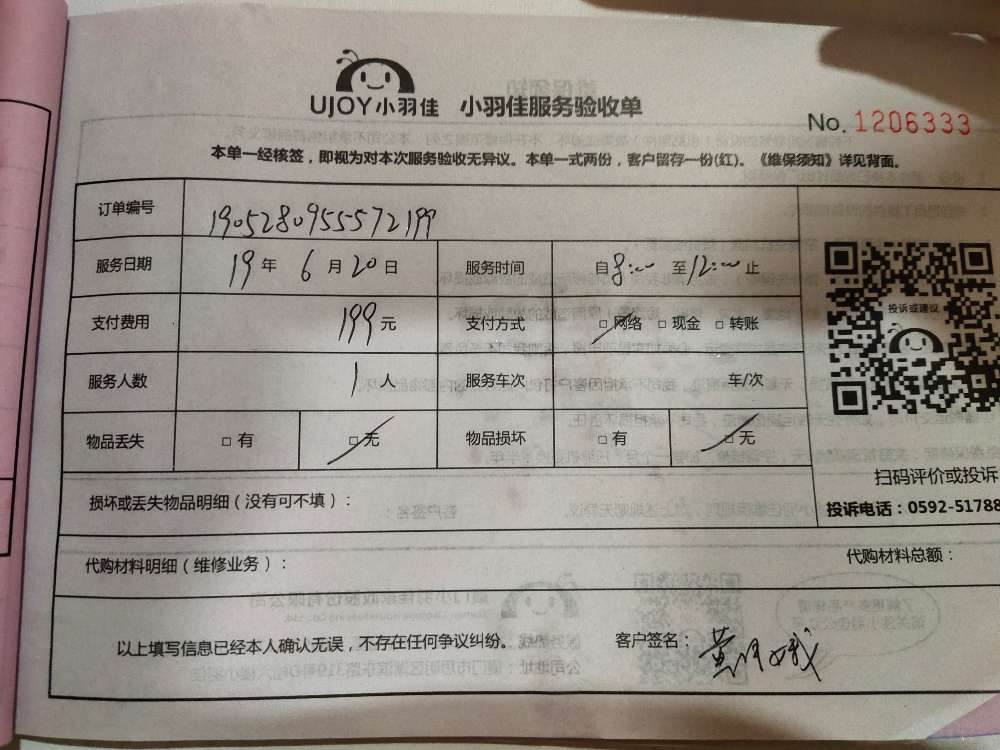 UJOY小羽佳 小羽佳服务验收单
No. 1206333
本单一经核签，即视为对本次服务验收无异议。本单一式两份，客户留存一份(红)。《维保须知》详见背面。
订单编号 1905280955572199
服务日期 19 年 6 月 20 日 服务时间 自 8:00 至 12:00 止
支付费用 199 元 支付方式 □ 网络 □ 现金 □ 转账
服务人数 1 人 服务车次 车/次
物品丢失 □ 有 □ 无 物品损坏 □ 有 □ 无
投诉或建议
扫码评价或投诉
投诉电话：0592-51788
损坏或丢失物品明细（没有可不填）：
代购材料明细（维修业务）： 代购材料总额：
以上填写信息已经本人确认无误，不存在任何争议纠纷。 客户签名：黄月娥